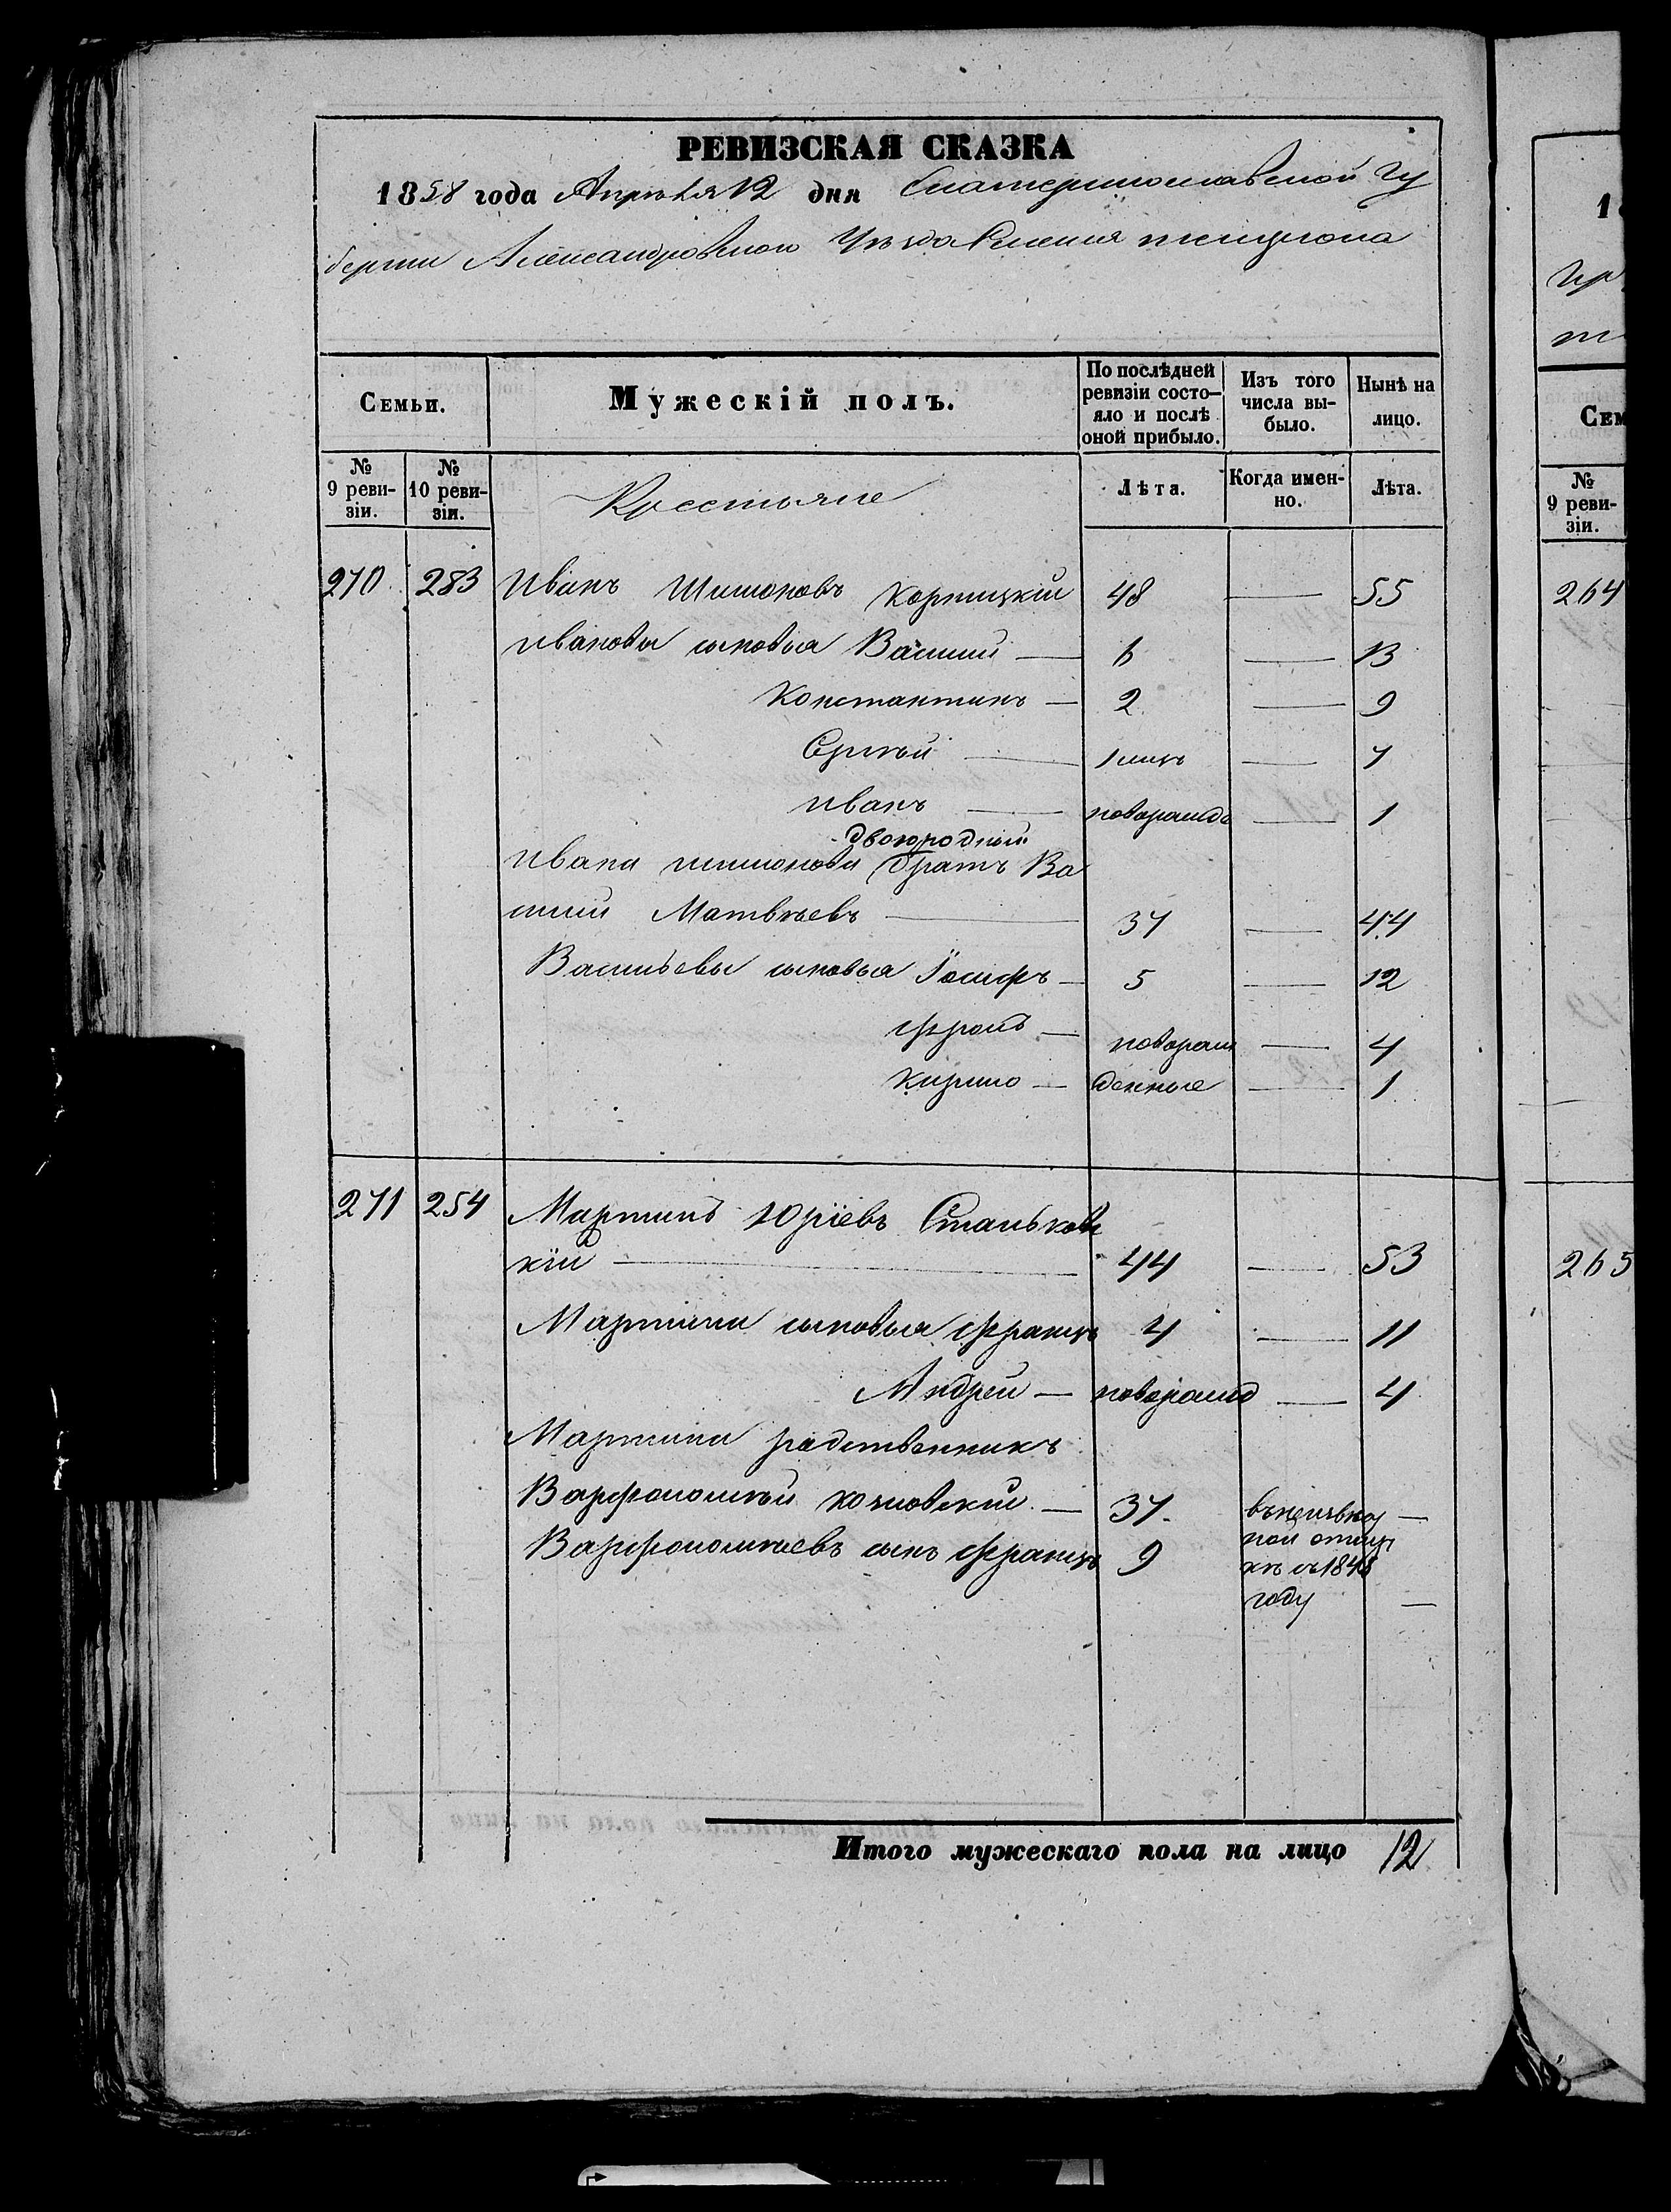 РЕВИЗСКАЯ СКАЗКА
1858 года Апреля 12 дня Екатеринославской Гу
бернии Александровского Уезда Селения
Семьи.
Мужескій полъ.
По послѣдней ревизіи состо—яло и послѣ оной прибыло.
Изъ того числа вы—было.
Нынѣ на лицо.
№ 9 реви-зіи.
№ 10 реви-зіи.
Крестьяне
Лѣта.
Когда имен-но.
Лѣта.
270 283 Иванъ Шимоновъ Корницкій 48 — 55
Ивановы сыновья Василий — 6 — 13
Константинъ — 2 — 9
Сергѣй — 1 мцъ — 7
Иванъ — новорожд — 1
двоюродный
Ивана Шимонова братъ Ва
силий Матвѣевъ — 37 — 44
Васильевы сыновья Іосифъ — 5 — 12
— новорож — 4
Кирило — денные — 1
271 254 Мартинъ Юріевъ Станьков
кій — 44 — 53
Мартина сыновья Францъ 4 — 11
Андрей — новорожд — 4
Мартина родственникъ
Варфоломѣй Козловский — 37.
Варфоломѣевъ сынъ Францъ 9
въ неизвѣст —
ной отлуч
кѣ съ 1848
году —
Итого мужескаго пола на лицо 12
1
Сем
№ 9 реви-зіи.
264
265